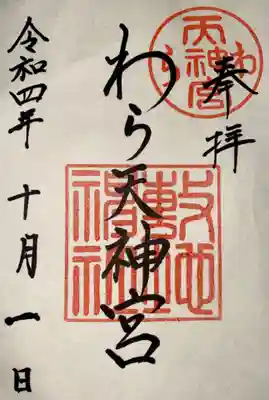 奉拝
わら天神宮
わら天神宮
敷地神社
令和四年 十月一日